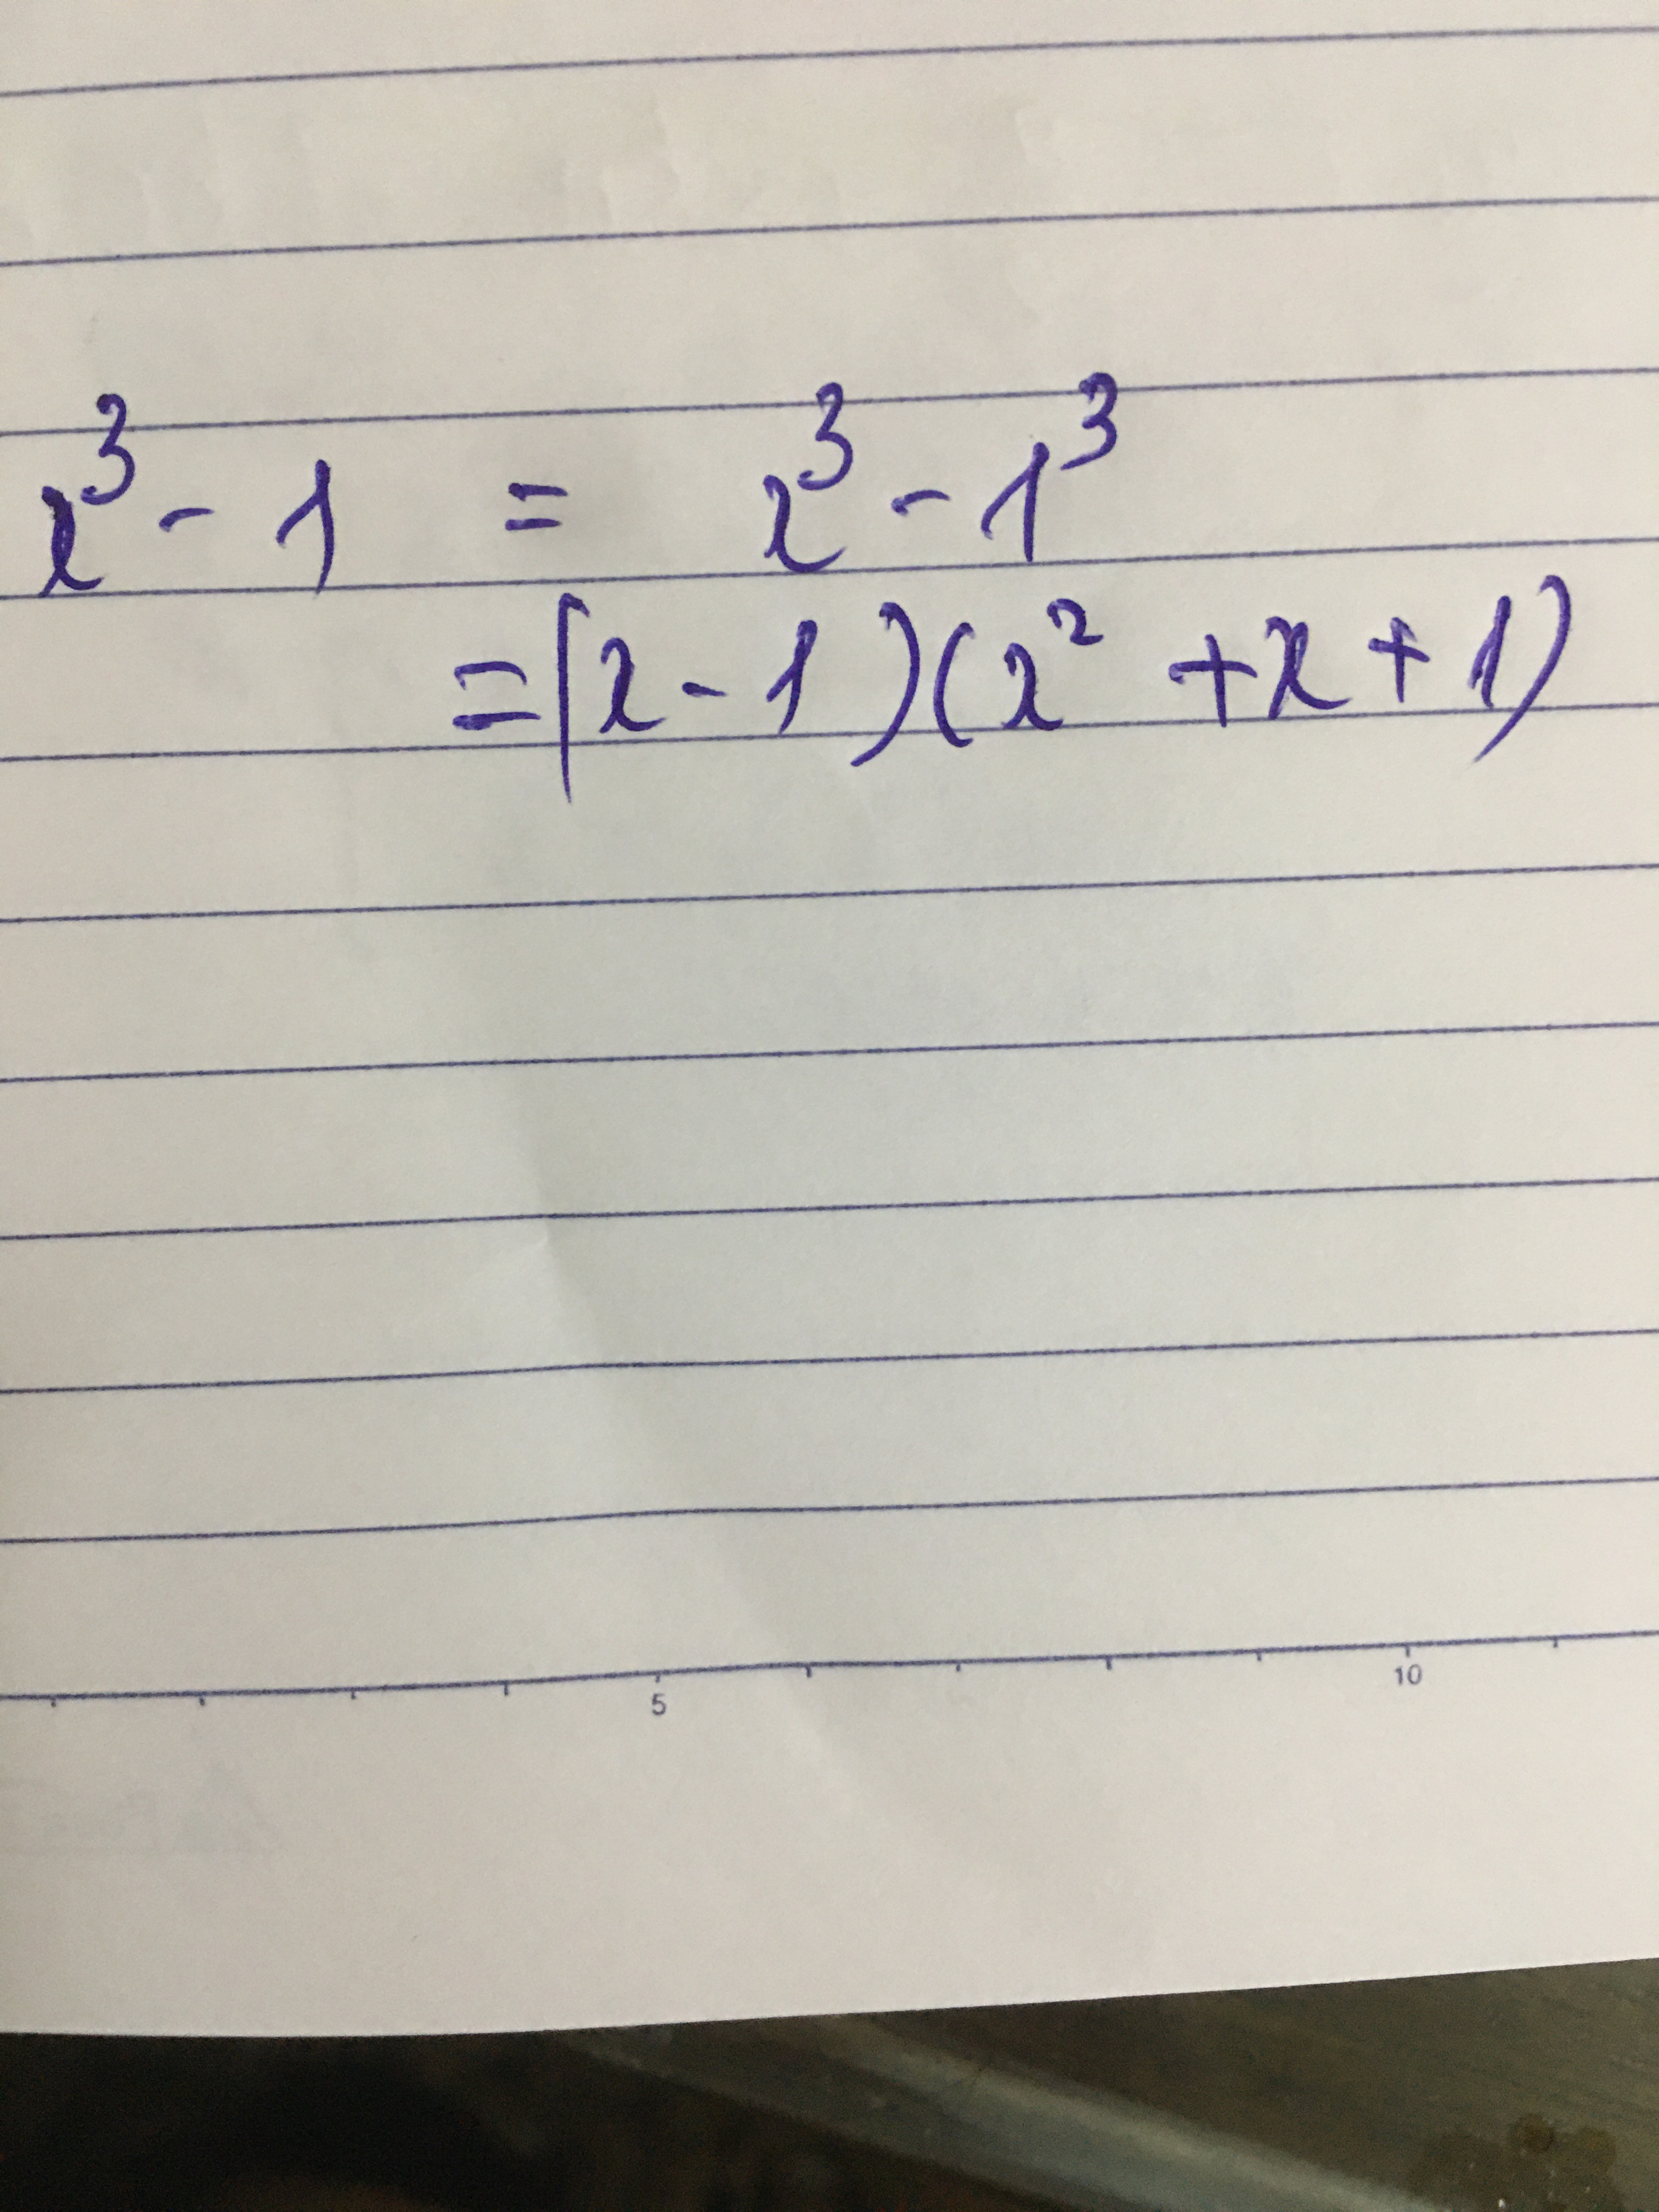 x³ - 1 = x³ - 1³
= (x - 1)(x² + x + 1)
5 10